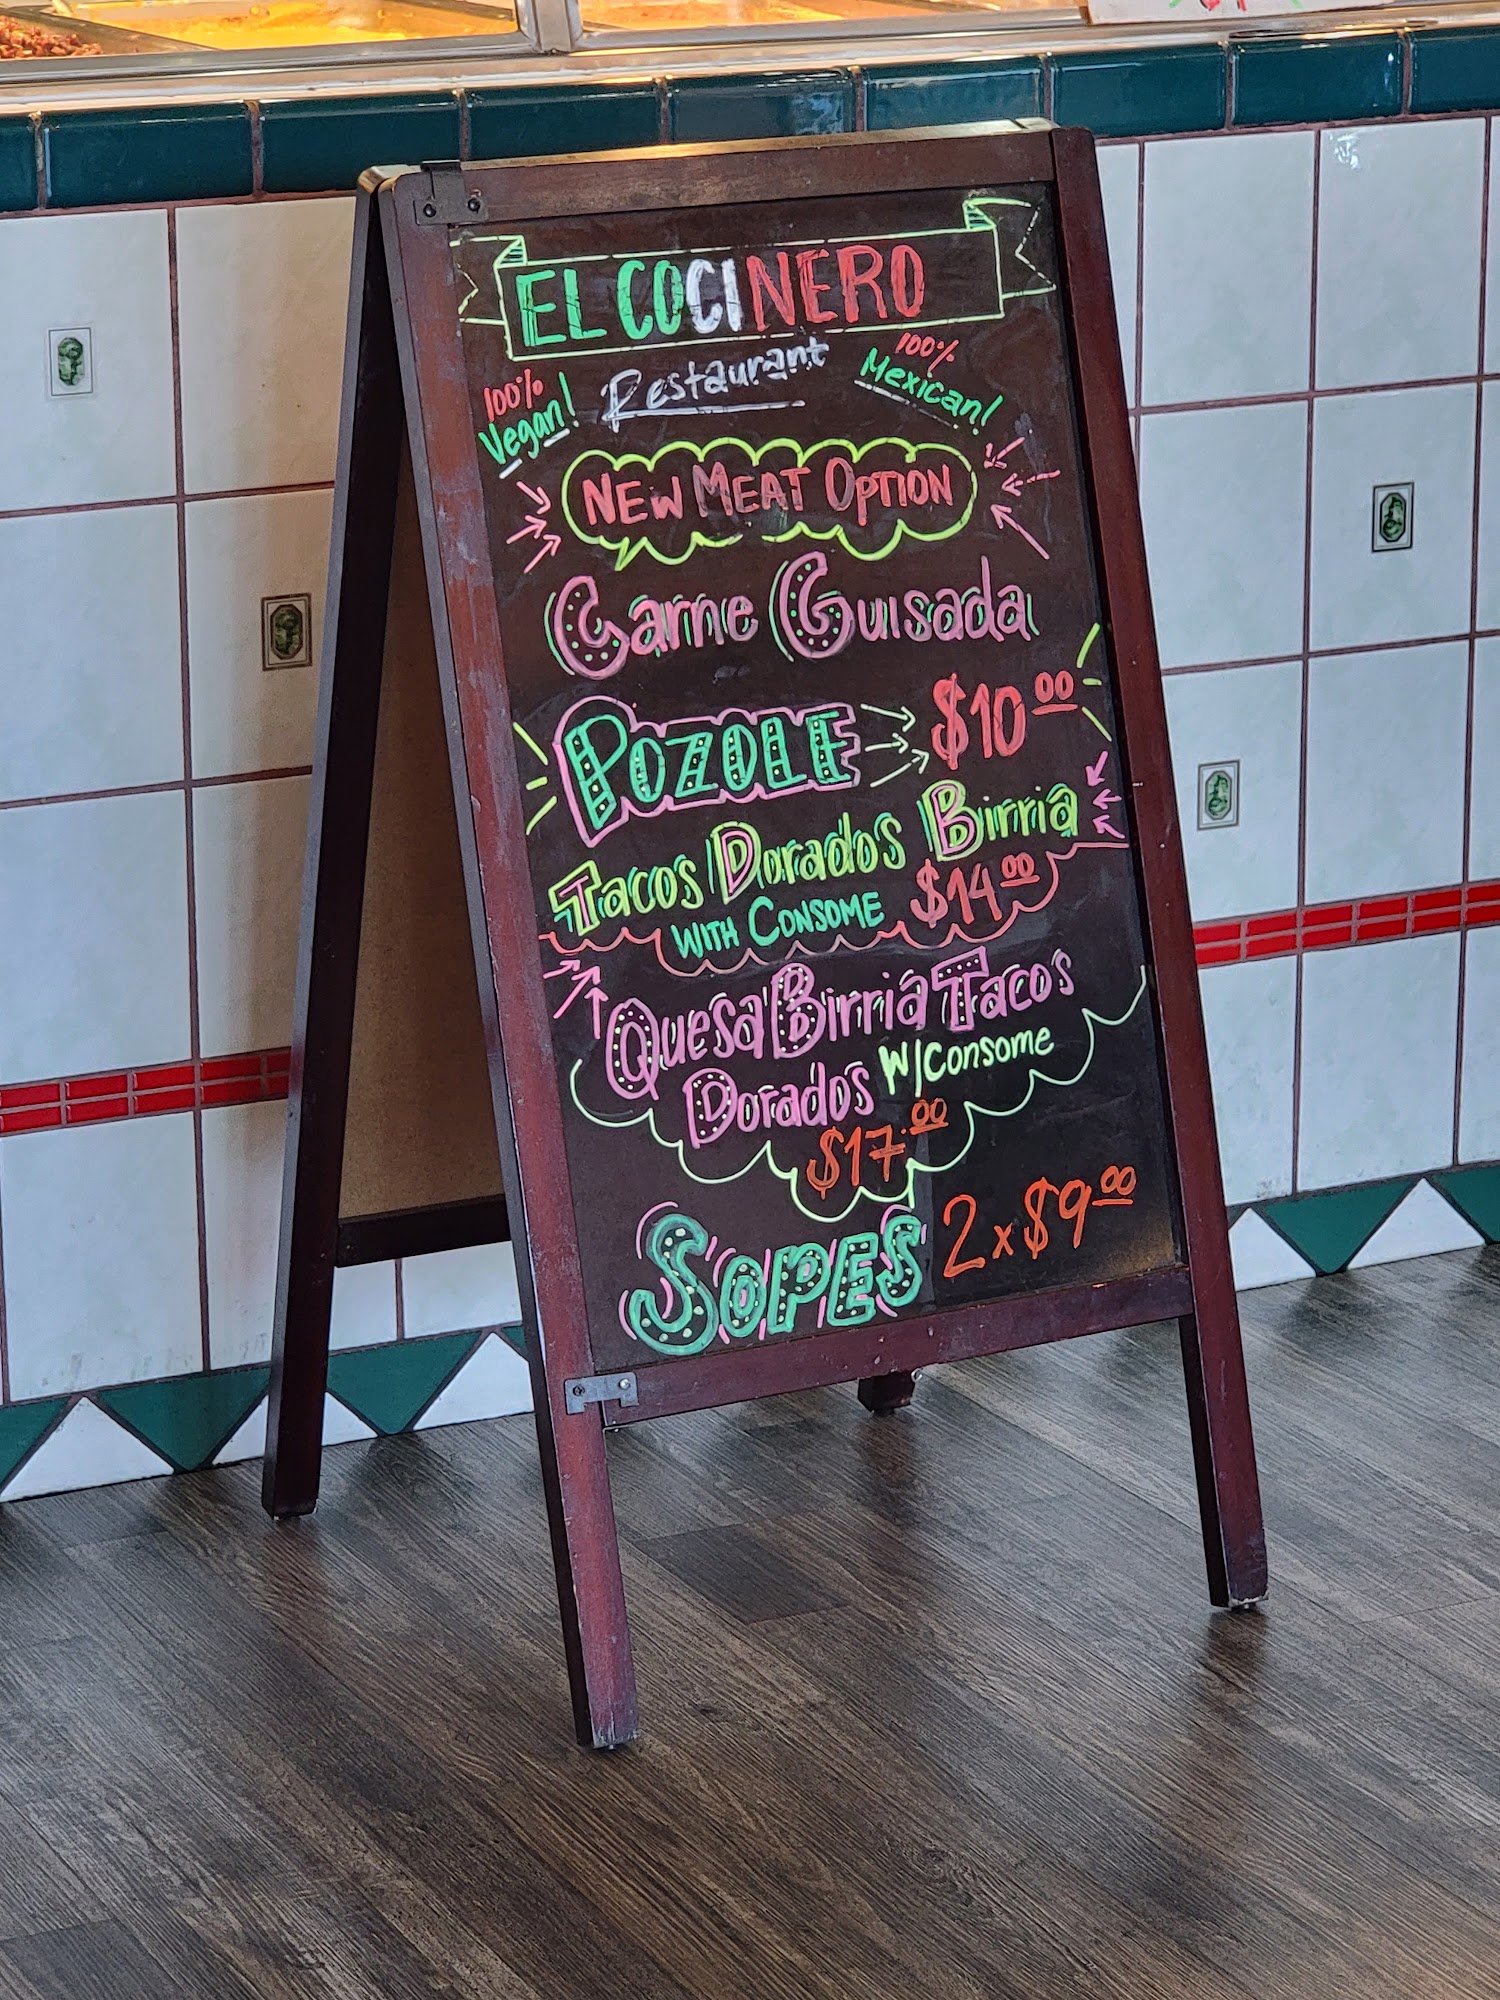 EL COCINERO
Restaurant
100%
Vegan!
100%
Mexican!
NEW MEAT OPTION
Carne Guisada
POZOLE $10.00
Tacos Dorados Birria
WITH CONSOME $14.00
Quesa Birria Tacos
Dorados W/Consome
$17.00
SOPES 2 x $9.00